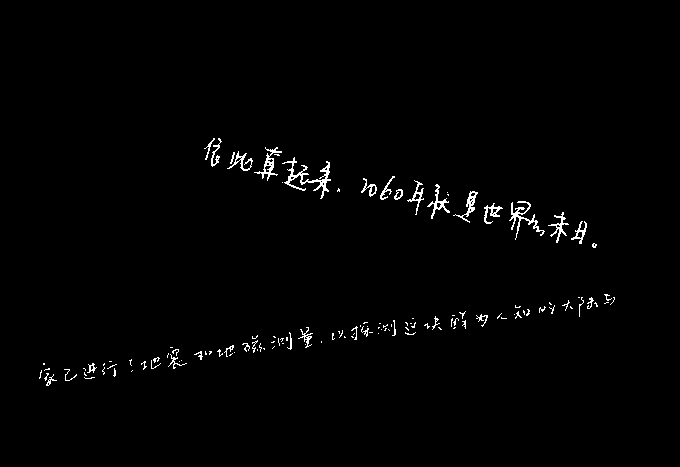 依此算起来，2060年就是世界的末日。
家已进行了地震和地磁测量，以探测这块鲜为人知的大陆与